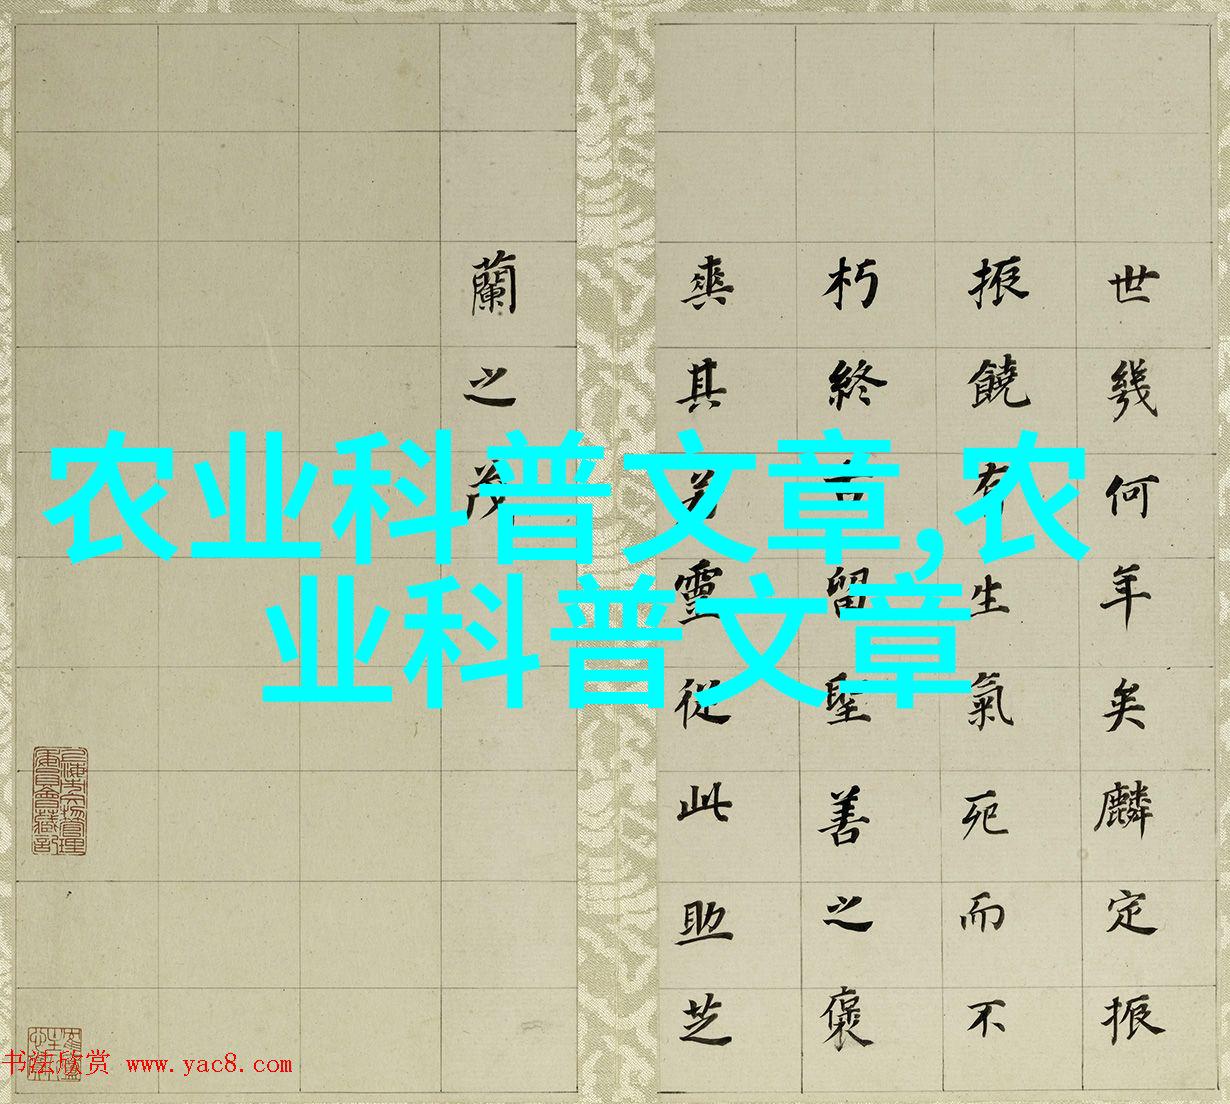 农业科普文章,农
业科普文章
世幾何年矣麟定振
振饒有生氣死而不
朽終古留聖善之褒
與其易靈從此助芝
蘭之茂
书法欣赏 www.yac8.com